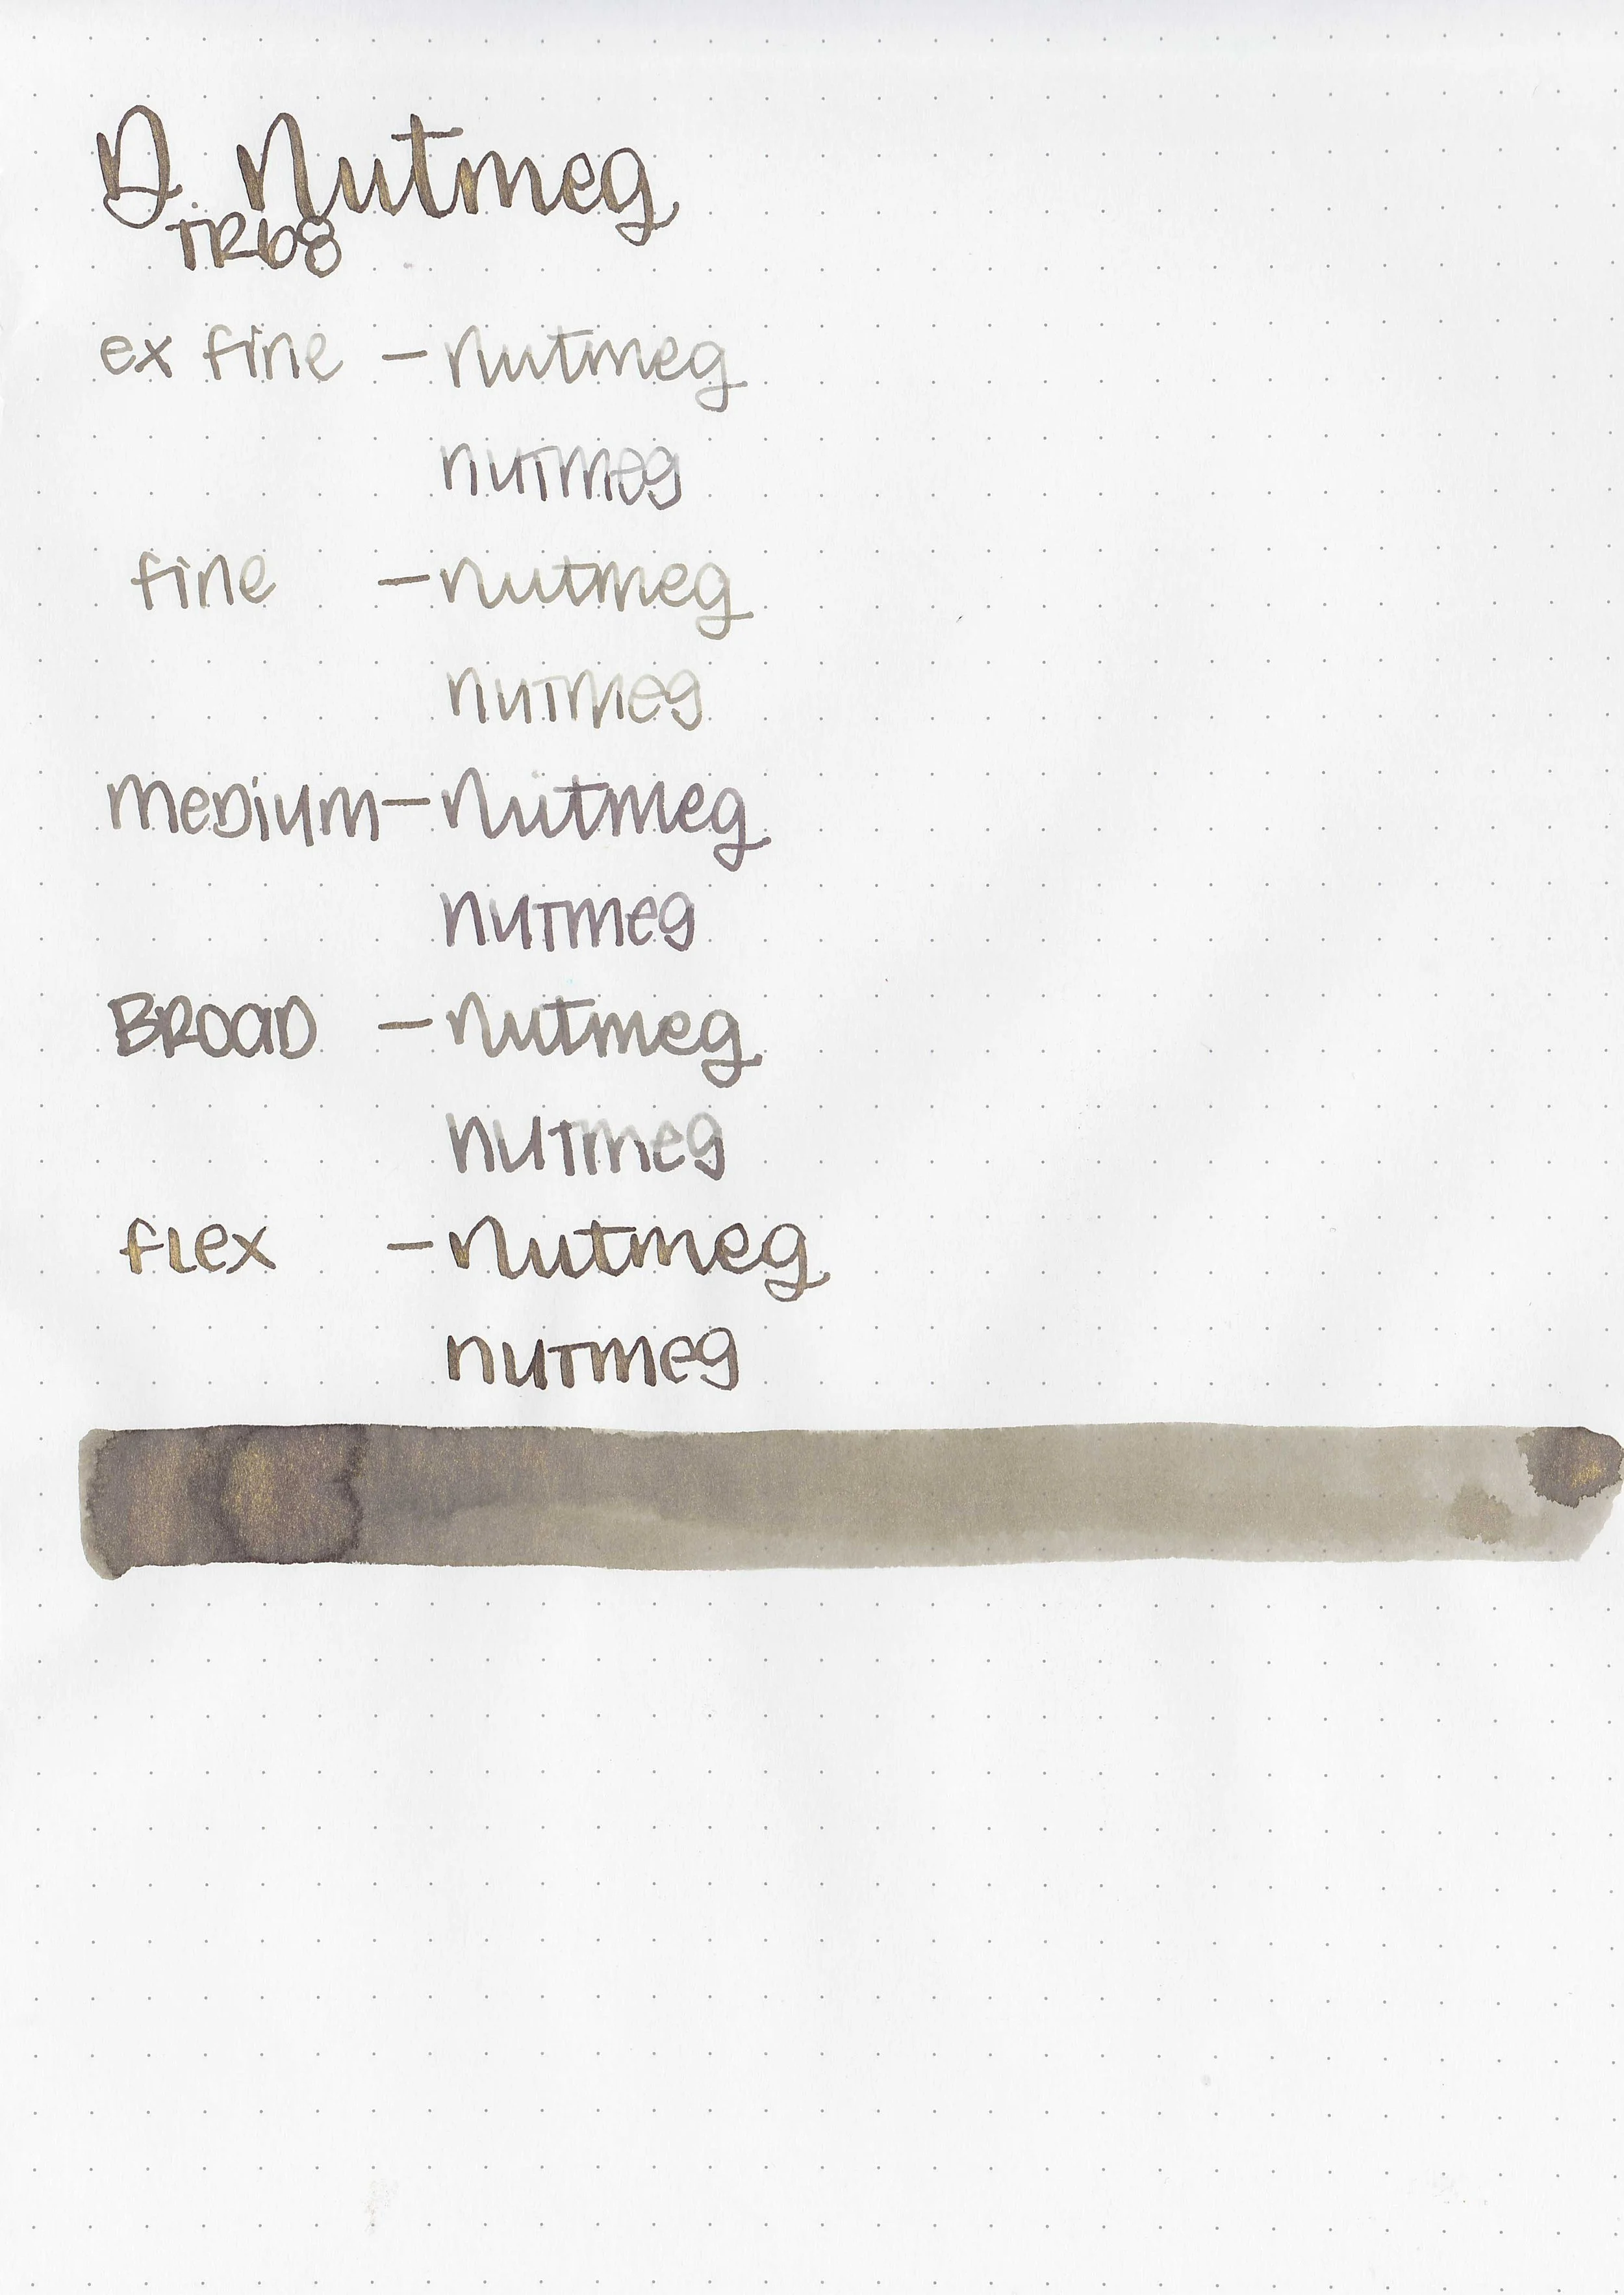 D. Nutmeg
TR68
ex fine - nutmeg
nutmeg
fine - nutmeg
nutmeg
meDium - nutmeg
nutmeg
BROaD - nutmeg
nutmeg
fLex - nutmeg
nutmeg